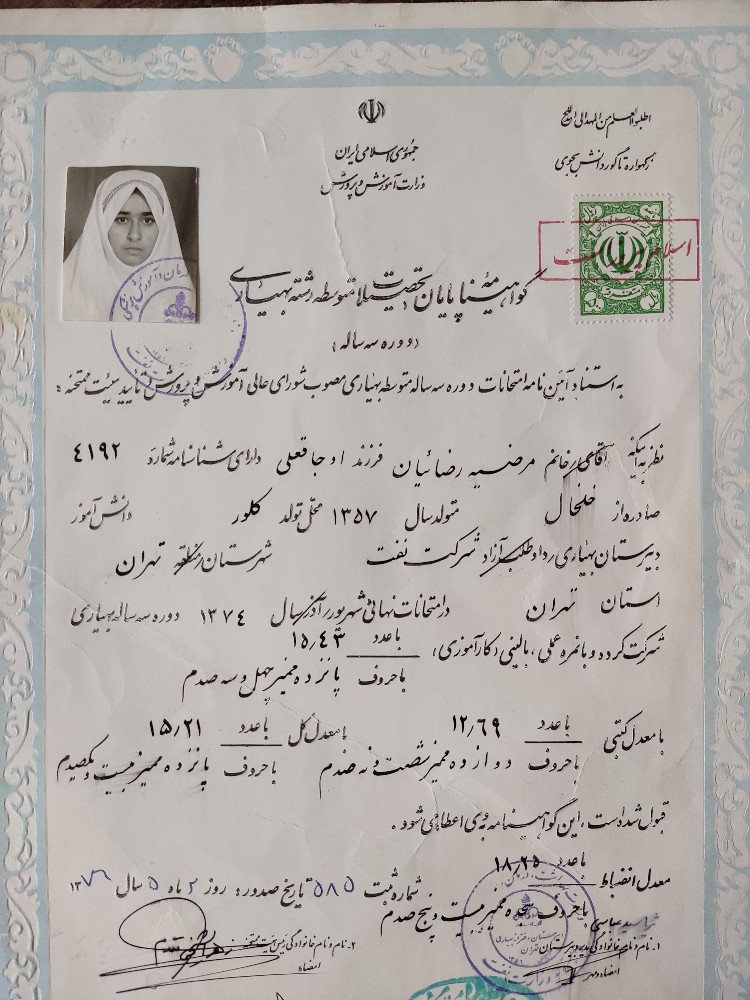 اطلبوا العلم من المهد الی اللحد
ز گهواره تا گور دانش بجوی
جمهوری اسلامی ایران
وزارت آموزش و پرورش
گواهینامه پایان تحصیلات متوسطه رشته بهیاری
(دوره سه ساله)
به استناد آیین نامه امتحانات دوره سه ساله متوسطه بهیاری مصوب شورای عالی آموزش و پرورش و تایید هیئت ممتحنه :
نظر به اینکه آقای/خانم مرضیه رضائیان فرزند اوجاقعلی دارای شناسنامه شماره ۴۱۹۲
صادره از خلخال متولد سال ۱۳۵۷ محل تولد کلور دانش آموز
دبیرستان بهیاری / داوطلب آزاد شرکت نفت شهرستان/منطقه تهران
استان تهران در امتحانات نهائی شهریور/آذر سال ۱۳۷۴ دوره سه ساله بهیاری
شرکت کرده و با نمره عملی، بالینی (کارآموزی) با عدد ۱۵/۴۳
با حروف پانزده ممیز چهل و سه صدم
با معدل کتبی با عدد ۱۲/۶۹ با معدل کل با عدد ۱۵/۲۱
با حروف دوازده ممیز شصت و نه صدم با حروف پانزده ممیز بیست و یکصدم
قبول شده است، این گواهینامه به وی اعطا می شود.
معدل انضباط با عدد ۱۸/۲۵
شماره ثبت ۵۸۵ تاریخ صدور: روز ۲ ماه ۵ سال ۱۳۷۶
با حروف هیجده ممیز بیست و پنج صدم
۱- نام و نام خانوادگی مدیر دبیرستان
امضاء و مهر
۲- نام و نام خانوادگی رئیس هیئت ممتحنه
امضاء